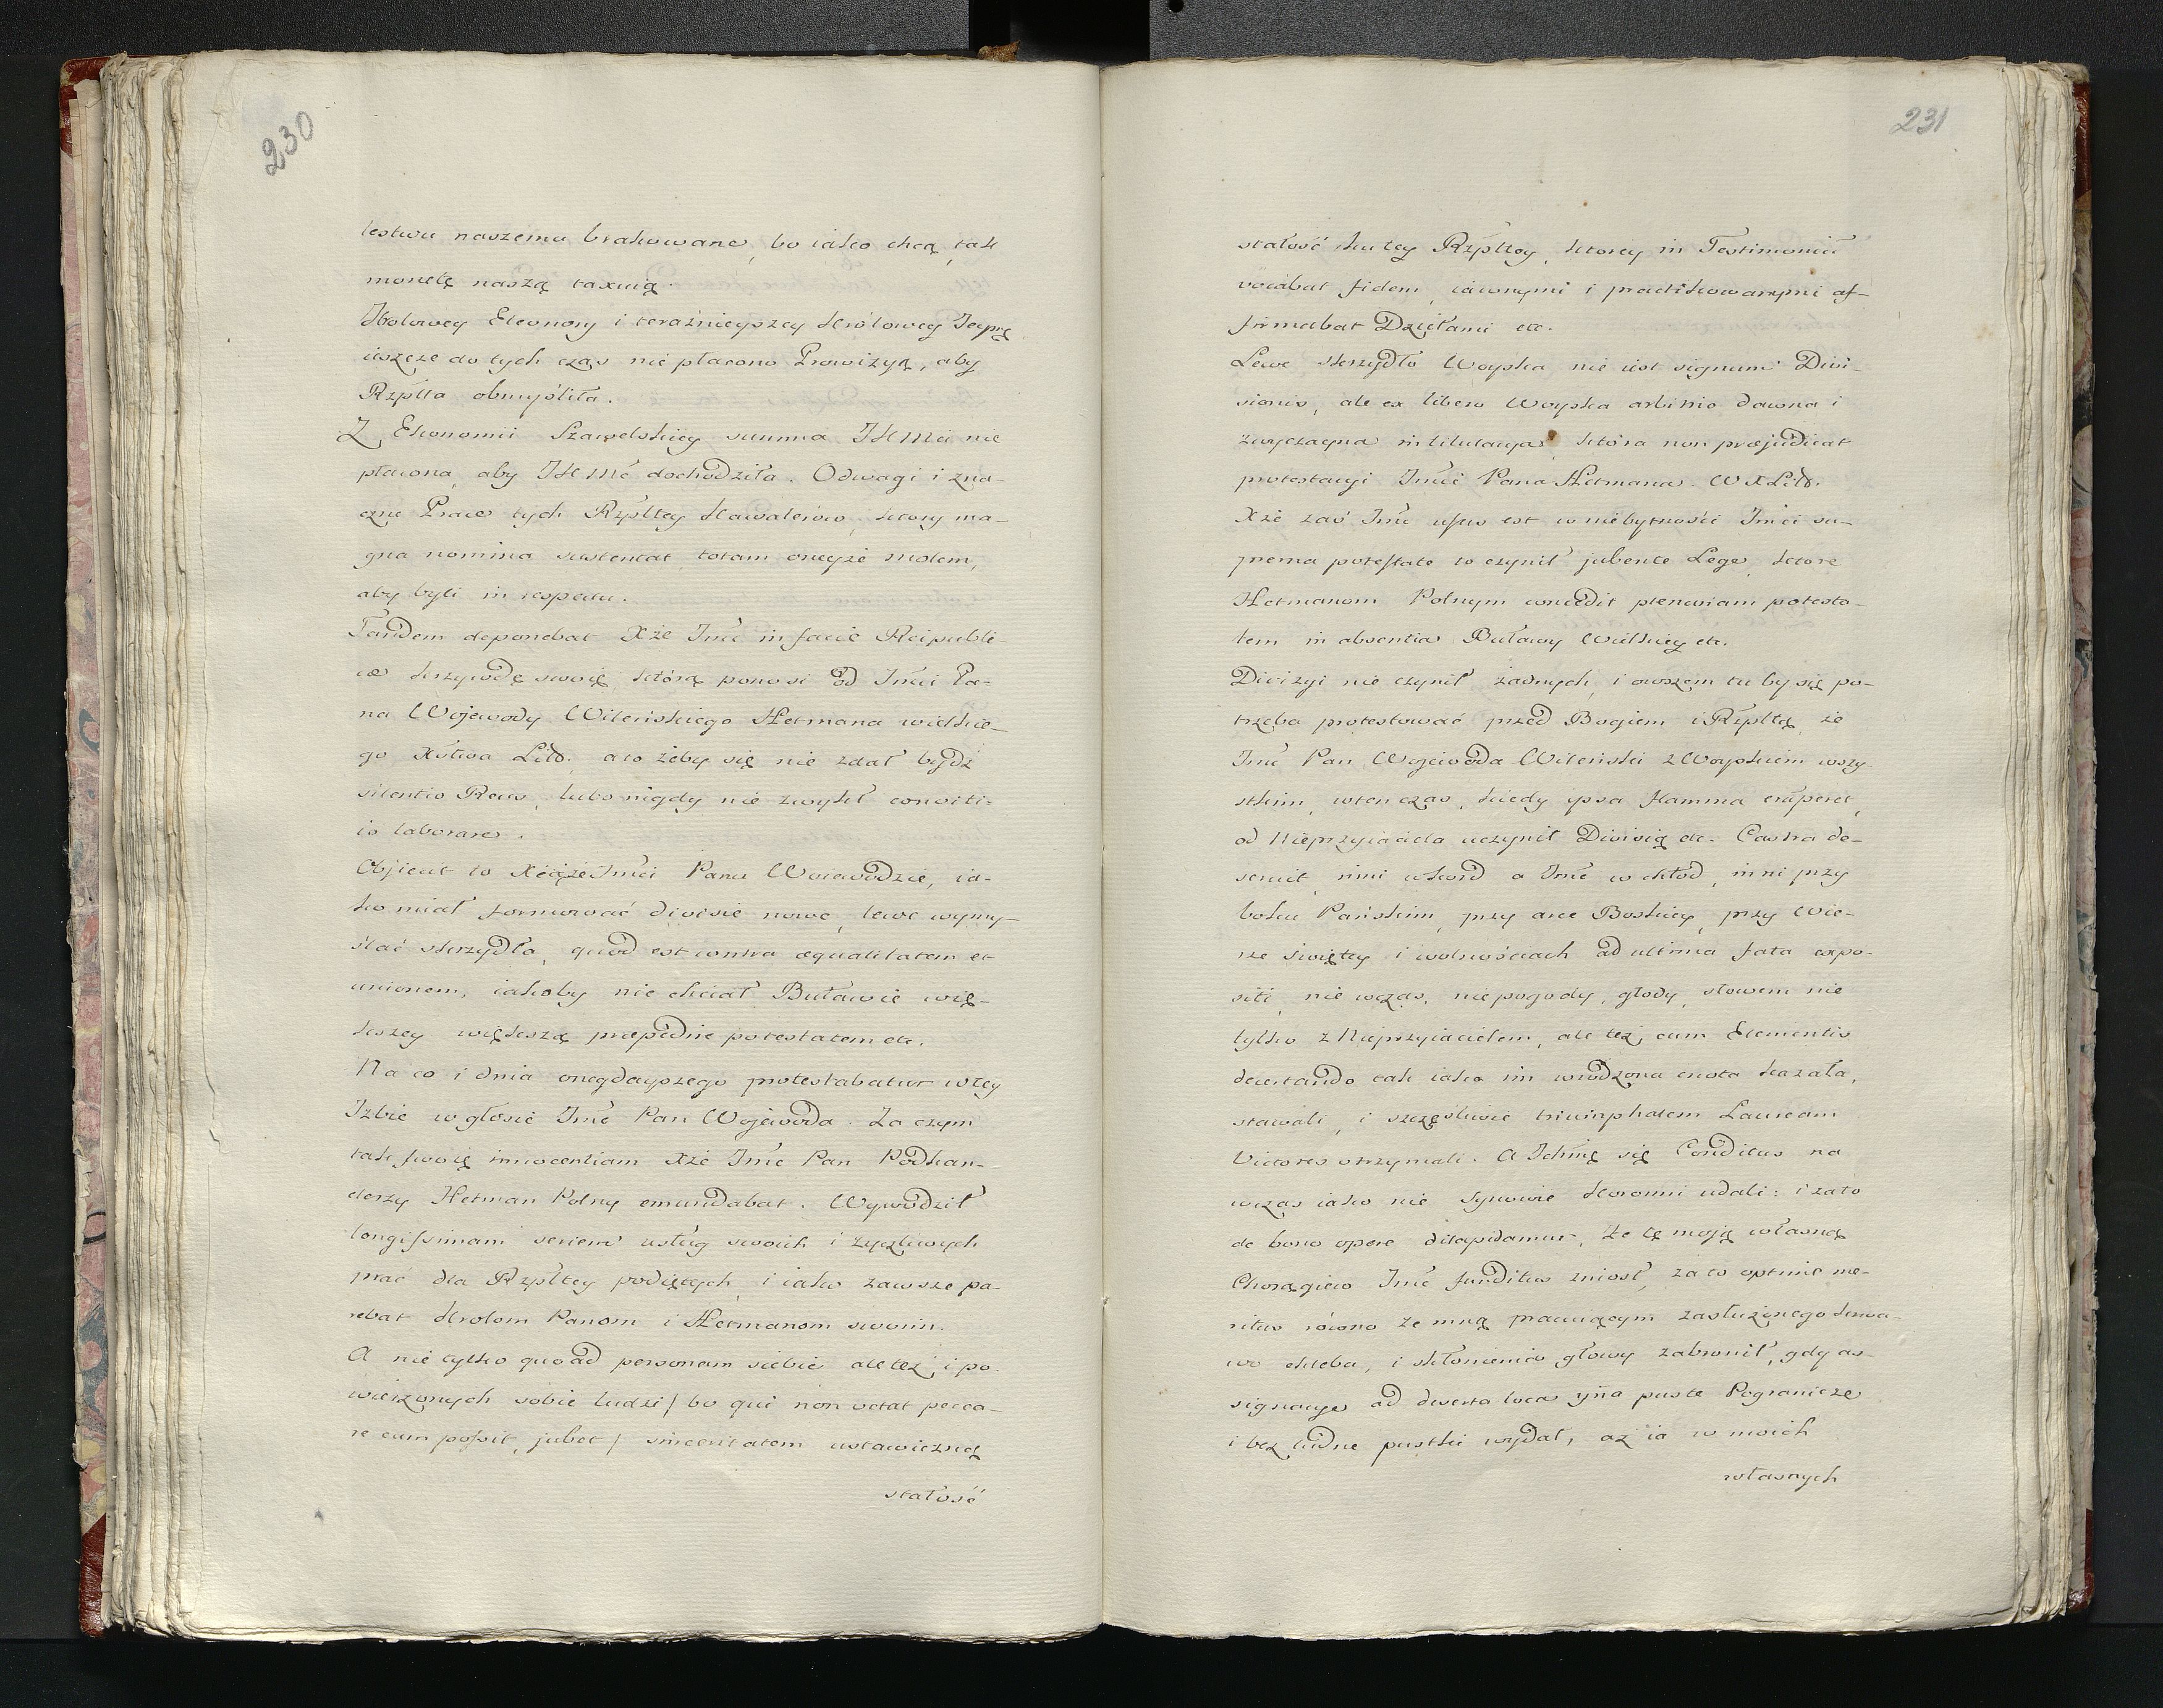 230
lestwu naszemu brakowane, bo iako chcą, tak
monetę naszą taxuią.
Krolowey Eleonory i teraźnieyszey Królowey Jeymę
ieszcze do tych czas nie płacono Prowizyą, aby
Rzplta obmyśliła.
Z Ekonomii Szawelskiey summa JKMci nie
płacona, aby JKMć dochodziła. Odwagi i zna-
czne Prace tych Rzpltey Kawalerów, ktory ma-
gna nomina sustentat totam oneyże molem,
aby byli in respectu.
Tandem deponebat Xże Jmć in facie Reipubli-
cæ krzywdę swoię, którą ponosi od Jmći Pa-
na Wojewody Wileńskiego Hetmana wielkie-
go Xstwa Litt. a to żeby się nie zdał bydź
silentio Reus, lubo nigdy nie zwykł conviti-
is laborare.
Objicit to Xciąże Jmći Panu Woiewodzie, ia-
ko miał formować divisie nowe, lewe wymy-
ślać skrzydła, quod est contra æqualitatem et
unionem, iakoby nie chciał Buławie więk-
kszey większą præpedire potestatem etc.
Na co i dnia onegdayszego protestabatur w tey
Izbie w głosie Jmć Pan Wojewoda. Za czym
tak swoię innocentiam Xże Jmć Pan Podkan-
clerzy Hetman Polny emundabat. Wywodził
longissimam seriem usług swoich i życzliwych
prac dla Rzpltey podiętych, i iako zawsze pa-
rebat Krolom Panom i Hetmanom swoim.
A nie tylko quoad personam siebie ale też i po-
wierzonych sobie ludzi / bo qui non vetat pecca-
re cum possit, jubet / sinceritatem ustawiczną
stałość
231
stałość ku tey Rzpltey, ktorey in Testimonium
vocabat fidem, iawnymi i practikowanymi af-
firmabat Dziełami etc.
Lewe skrzydło Woyska nie iest signum Divi-
sionis, ale ex libero Woyska arbitrio dawna i
zwyczayna intitulacya, która non præjudicat
protestacyi Jmći Pana Hetmana WXLitt.
Xże zaś Jmć usus est w niebytności Jmći su-
prema potestate to czynił jubente Lege, ktore
Hetmanom Polnym concedit plenariam potesta-
tem in absentia Buławy Wielkiey etc.
Divizyi nie czynił żadnych, i owszem tu by się po-
trzeba protestować przed Bogiem i Rzpltą, że
Jmć Pan Wojewoda Wileński z Woyskiem wszy-
stkim, wtenczas, kiedy ipsa flamma eruperet,
od Nieprzyiaciela uczynił Divisią etc. Castra de-
seruit, inni w kord a Jmć w chłod, inni przy
boku Pańskim, przy arce Boskiey, przy Wie-
rze świętey i wolnościach ad ultima fata expo-
siti, nie wczas, niepogody, głody, słowem nie
tylko z Nieprzyiacielem, ale też cum Elementis
decertando tak iako im wrodzona cnota kazała,
stawali, i szczęśliwie triumphalem Lauream
Victores otrzymali. A Ichmć się Conditus na
wczas iako nie Synowie Koronni udali: i za to
de bono opere dilapidamur, Że tę moią własną
Chorągiew Jmć funditus zniosł, za to optime me-
ritus równo ze mną pracuiącym zasłużonego kawa-
wo chleba, i skłonienia głowy zabronił, gdy as-
signacye ad deserta loca y na puste Pogranicze
i bez ludne pustki wydał, aż ia w moich
własnych